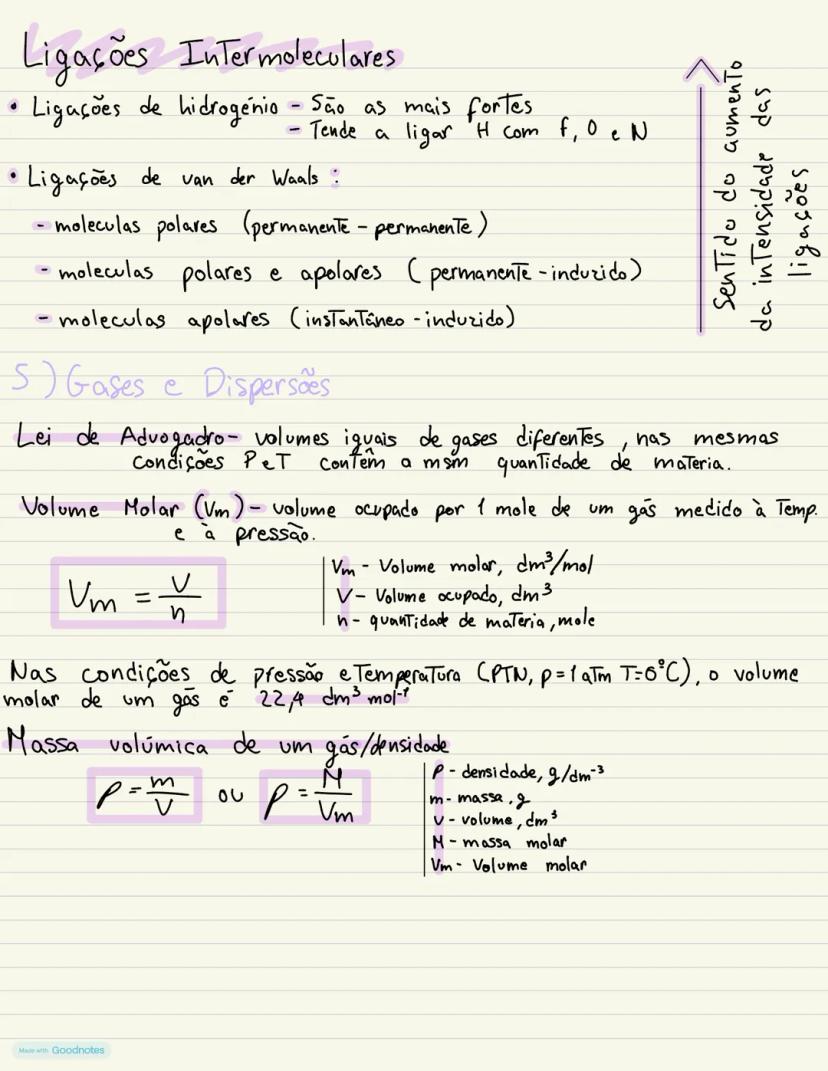 Ligações Intermoleculares
• Ligações de hidrogénio - São as mais fortes
- Tende a ligar H com f, O e N
• Ligações de van der Waals :
- moleculas polares (permanente - permanente)
- moleculas polares e apolares (permanente - induzido)
- moleculas apolares (instantâneo - induzido)
Sentido do aumento
da intensidade das
ligações
5) Gases e Dispersões
Lei de Advogadro- volumes iguais de gases diferentes, nas mesmas
condições P e T contêm a msm quantidade de materia.
Volume Molar (Vm) - volume ocupado por 1 mole de um gás medido à Temp.
e à pressão.
Vm = V/n
Vm - Volume molar, dm³/mol
V - Volume ocupado, dm³
n - quantidade de materia, mole
Nas condições de pressão e Temperatura (PTN, p=1 atm T=0°C), o volume
molar de um gás é 22,4 dm³ mol⁻¹
Massa volúmica de um gás/densidade
ρ = m/V ou ρ = M/Vm
ρ - densidade, g/dm⁻³
m - massa, g
V - volume, dm³
M - massa molar
Vm - Volume molar
Made with Goodnotes